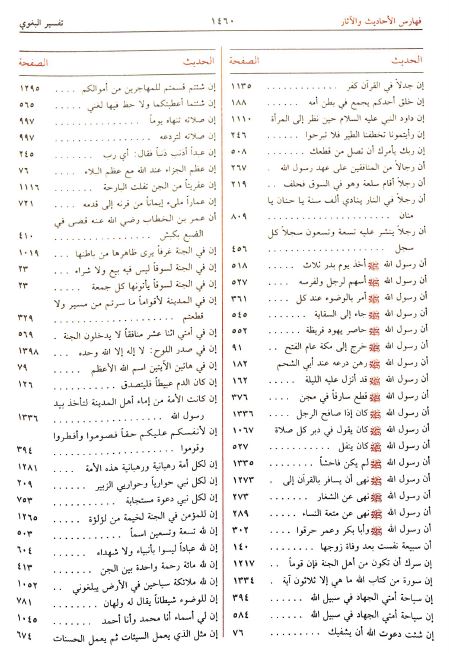 فهارس الأحاديث والآثار
١٤٦٠
تفسير البغوي
الحديث الصفحة
إن جدلاً في القرآن كفر ١١٣٥
إن خلق أحدكم يجمع في بطن أمه ١٨٨
إن داود النبي عليه السلام حين نظر إلى المرأة ١١١٠
إن رأيتمونا تخطفنا الطير فلا تبرحوا ٢٤٦
إن ربك يأمرك أن تصل من قطعك ٥٠٨
أن رجالاً من المنافقين على عهد رسول الله ٢٦٧
أن رجلاً أقام سلعة وهو في السوق فحلف ٢١٩
أن رجلاً في النار ينادي ألف سنة يا حنان يا
منان ٨٠٩
أن رجلاً ينشر عليه تسعة وتسعون سجلاً كل
سجل ٤٥٦
أن رسول الله ﷺ أخذ يوم بدر ثلاث ٥١٨
أن رسول الله ﷺ أسهم لرجل ولفرسه ٥٢٧
أن رسول الله ﷺ أمر بالوضوء عند كل ٣٦١
أن رسول الله ﷺ جاء إلى السقاية ٥٤٥
أن رسول الله ﷺ حاصر يهود قريظة ٥٥٢
أن رسول الله ﷺ خرج إلى مكة عام الفتح ٩١
أن رسول الله ﷺ رهن درعه عند أبي الشحم ١٨٢
أن رسول الله ﷺ قد أنزل عليه الليلة ١٦٢
أن رسول الله ﷺ قطع سارقاً في مجن ٣٧٦
أن رسول الله ﷺ كان إذا صافح الرجل ١٣٣٦
أن رسول الله ﷺ كان يقول في دبر كل صلاة ١٠٦٧
أن رسول الله ﷺ كان ينفل ٥٢٧
أن رسول الله ﷺ لم يكن فاحشاً ١٣٣٥
أن رسول الله ﷺ نهى أن يسافر بالقرآن إلى ١٢٧٣
أن رسول الله ﷺ نهى عن الشغار ٢٧٣
أن رسول الله ﷺ نهى عن متعة النساء ٢٨٩
أن رسول الله ﷺ وأبا بكر وعمر حرقوا ٣٠٢
أن سبيعة نفست بعد وفاة زوجها ١٤٠
إن سرك أن تكون من أهل الجنة فإن قوماً ١٢١٧
إن سورة من كتاب الله ما هي إلا ثلاثون آية ١٣٣٤
إن سياحة أمتي الجهاد في سبيل الله ٣٩٤
إن سياحة أمتي الجهاد في سبيل الله ٥٨٤
إن شئت دعوت الله أن يشفيك ٧٦
الحديث الصفحة
إن شئتم قسمتم للمهاجرين من أموالكم ١٢٩٥
إن شئتما أعطيتكما ولا حظ فيها لغني ٥٦٥
إن صلاته تنهاه يوماً ٩٩٧
إن صلاته لتردعه ٩٩٧
إن عبداً أذنب ذنباً فقال: أي رب ٢٤٥
إن عظم الجزاء عند الله مع عظم البلاء ٧٦
إن عفريتاً من الجن تفلت البارحة ١١١٦
إن عماراً ملىء إيماناً من قرنه إلى قدمه ٧٢١
أن عمر بن الخطاب رضي الله عنه قضى في
الضبع بكبش ٤١٠
إن في الجنة غرفاً يرى ظاهرها من باطنها ١٠١٩
إن في الجنة لسوقاً ليس فيه بيع ولا شراء ٢٣
إن في الجنة لسوقاً يأتونها كل جمعة ٢٣
إن في المدينة لأقواماً ما سرتم من مسير ولا
قطعتم ٣٢٩
إن في أمتي اثنا عشر منافقاً لا يدخلون الجنة ٥٦٩
إن في صدر اللوح: لا إله إلا الله وحده ١٣٩٨
إن في هاتين الآيتين اسم الله الأعظم ٧٩
إن كان الدم عبيطاً فليتصدق ١٢٦
إن كانت الأمة من إماء أهل المدينة لتأخذ بيد
رسول الله ١٣٣٦
إن لأنفسكم عليكم حقاً فصوموا وأفطروا
وقوموا ٣٩٤
إن لكل أمة رهبانية ورهبانية هذه الأمة ١٢٨١
إن لكل نبي حوارياً وحواريي الزبير ٢٠٩
إن لكل نبي دعوة مستجابة ٧٥٣
إن للمؤمن في الجنة لخيمة من لؤلؤة ١٢٦٥
إن لله تسعة وتسعين اسماً ٥٠٣
إن لله عباداً ليسوا بأنبياء ولا شهداء ٦٠٤
إن لله مائة رحمة واحدة بين الجن ٤١٣
إن لله ملائكة سياحين في الأرض يبلغوني ١٠٥٢
إن للوضوء شيطاناً يقال له ولهان ٧٨١
إن لي أسماء أنا محمد وأنا أحمد ١٠٤٥
إن مثل الذي يعمل السيئات ثم يعمل الحسنات ٦٧٤